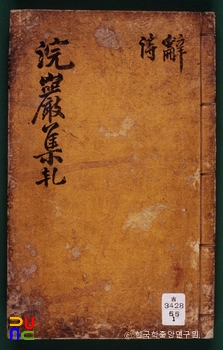 辭
詩
浣巖集乹
3428
55
1
© 한국학중앙연구원